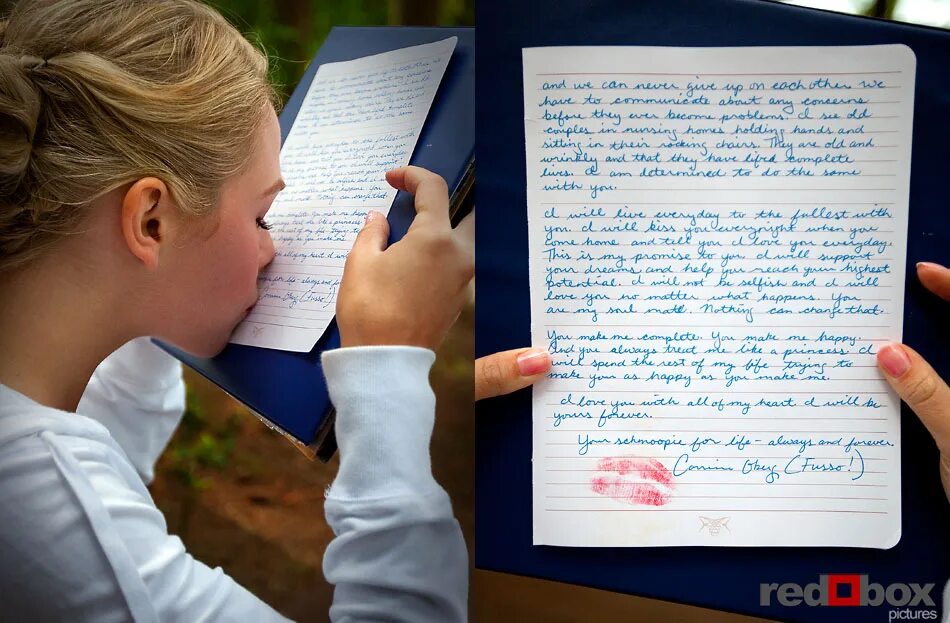 and we can never give up on each other. We
have to communicate about any concerns
before they ever become problems. I see old
couples in nursing homes holding hands and
sitting in their rocking chairs. They are old and
wrinkly and that they have lived complete
lives. I am determined to do the same
with you.
I will live everyday to the fullest with
you. I will kiss you everynight when you
come home and tell you I love you everyday.
This is my promise to you. I will support
your dreams and help you reach your highest
potential. I will not be selfish and I will
love you no matter what happens. You
are my soul mate. Nothing can change that.
You make me complete. You make me happy.
And you always treat me like a princess. I
will spend the rest of my life trying to
make you as happy as you make me.
I love you with all of my heart. I will be
yours forever.
Your schmoopie for life - always and forever
(Fusso!)
redbox
pictures